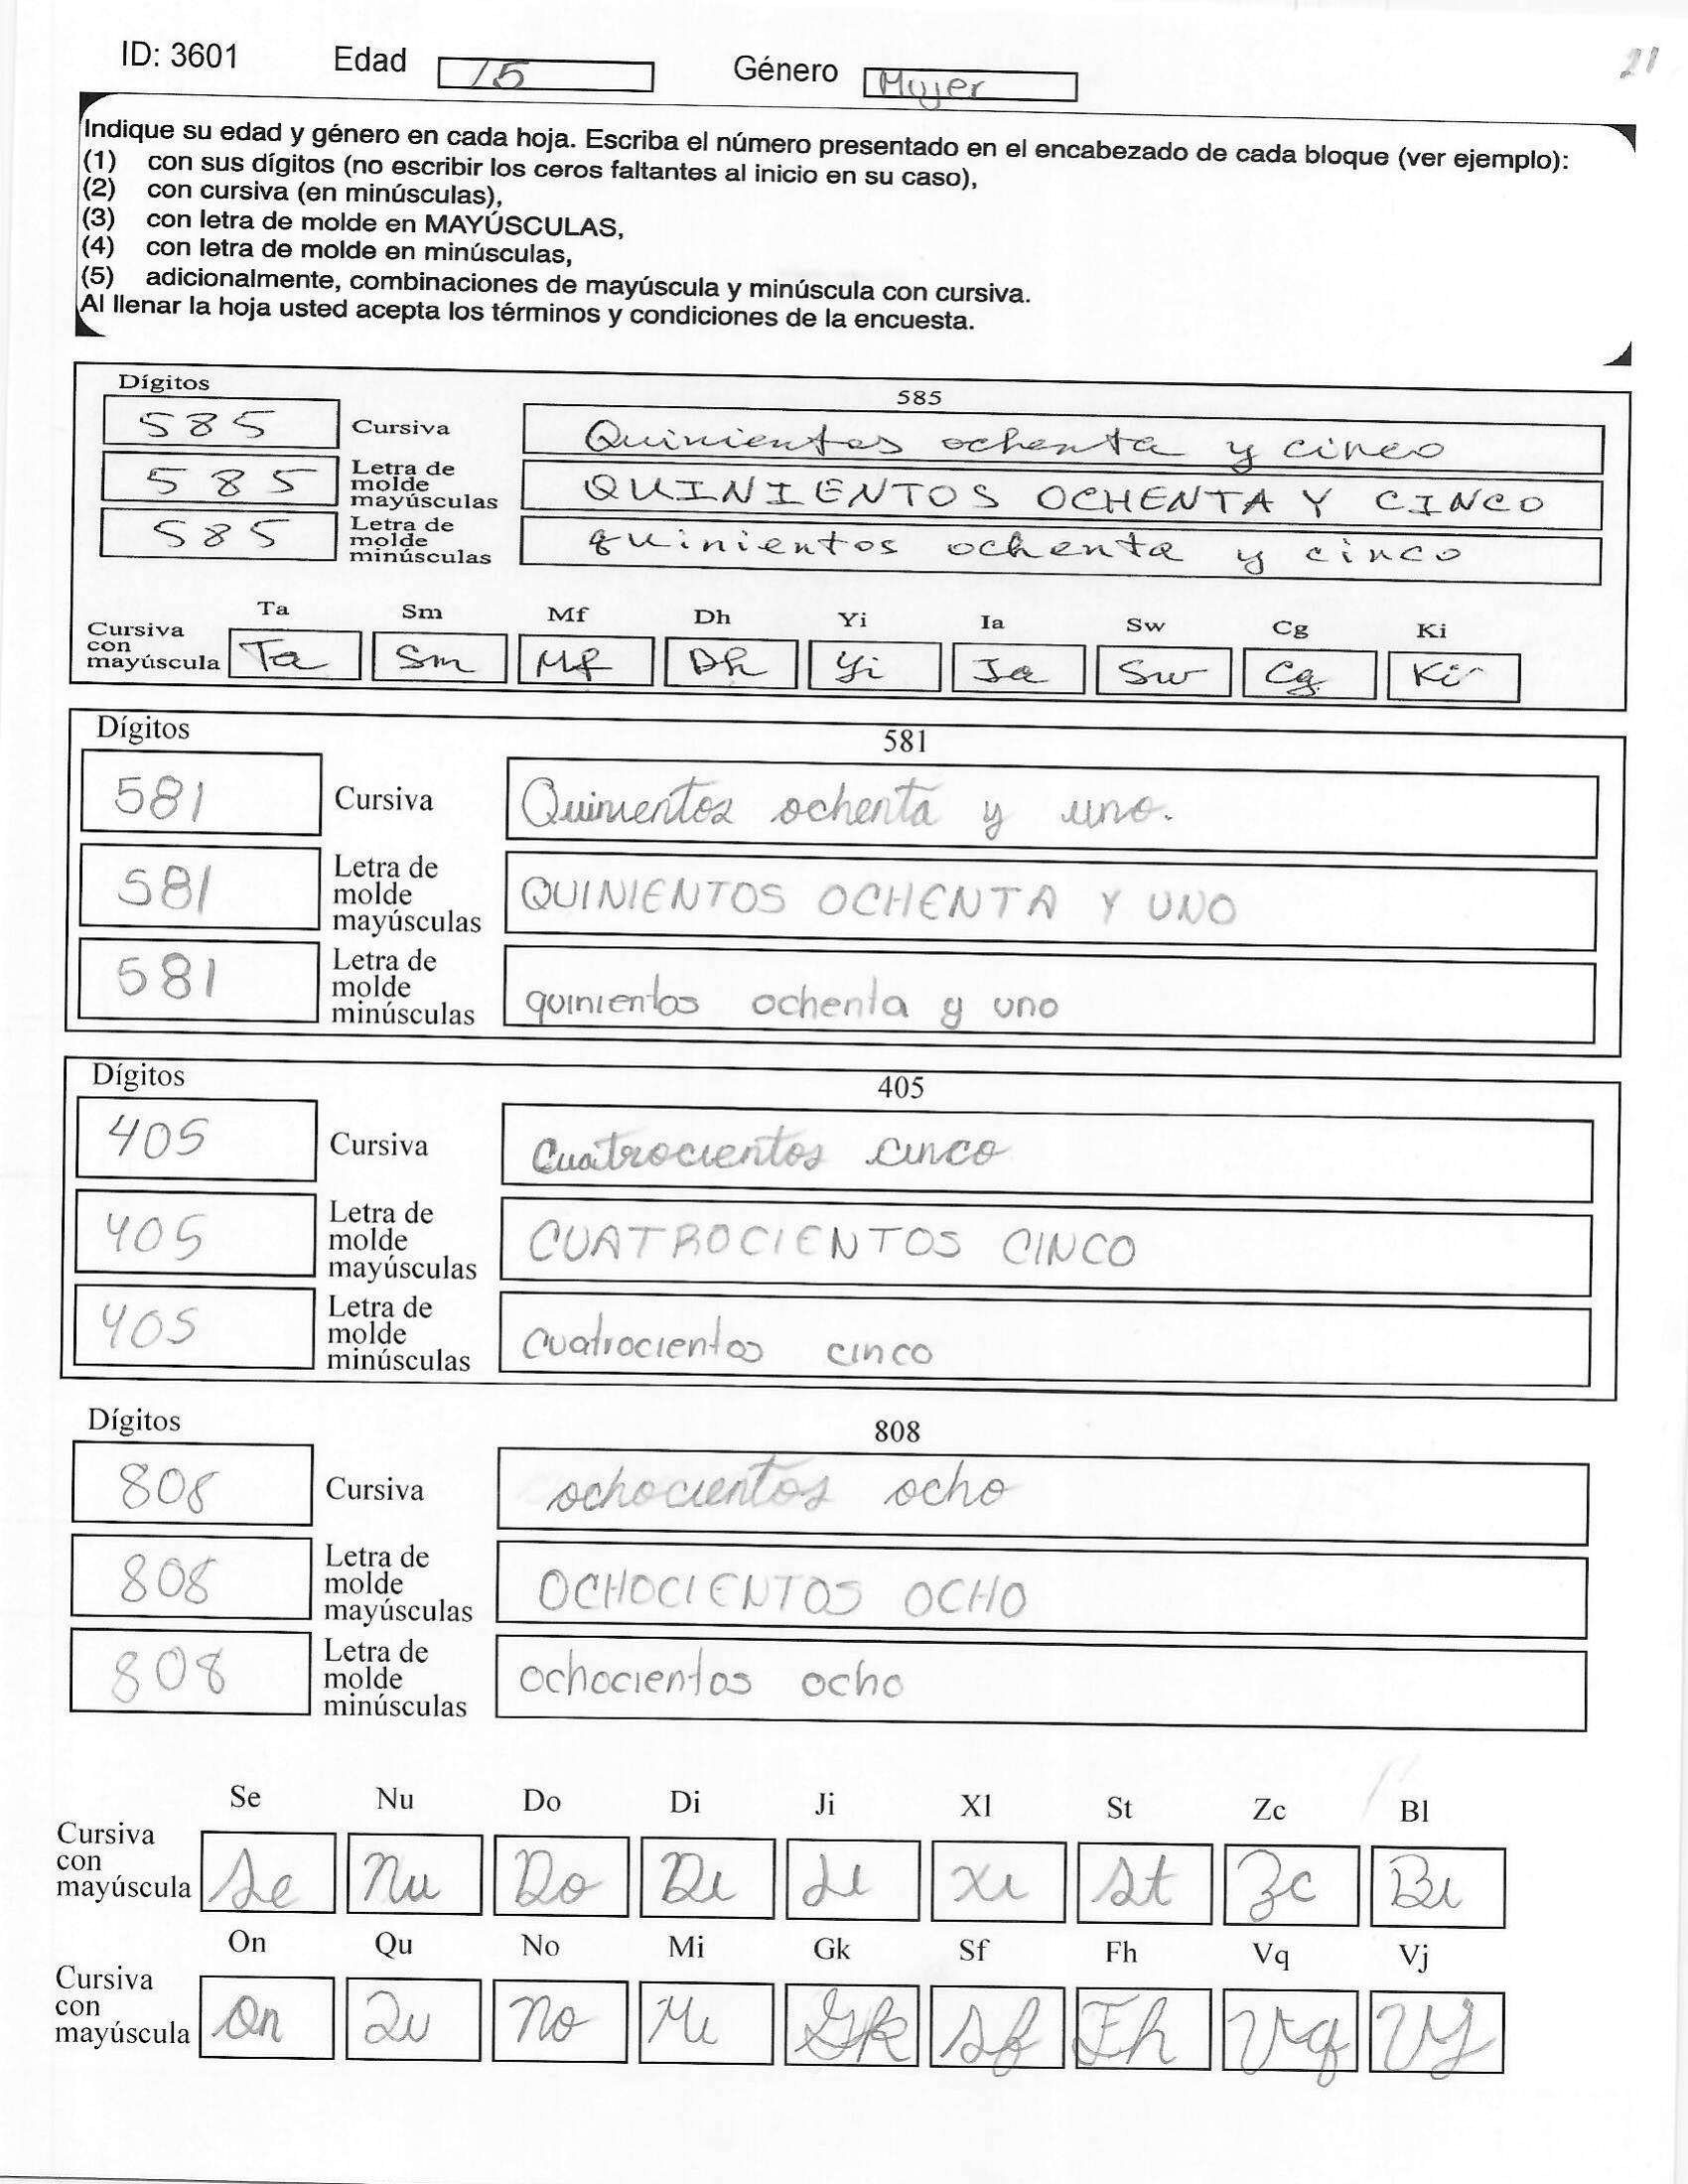 ID: 3601 Edad 15 Género Mujer 21
Indique su edad y género en cada hoja. Escriba el número presentado en el encabezado de cada bloque (ver ejemplo):
(1) con sus dígitos (no escribir los ceros faltantes al inicio en su caso),
(2) con cursiva (en minúsculas),
(3) con letra de molde en MAYÚSCULAS,
(4) con letra de molde en minúsculas,
(5) adicionalmente, combinaciones de mayúscula y minúscula con cursiva.
Al llenar la hoja usted acepta los términos y condiciones de la encuesta.
Dígitos 585
585 Cursiva Quinientos ochenta y cinco
585 Letra de molde mayúsculas QUINIENTOS OCHENTA Y CINCO
585 Letra de molde minúsculas quinientos ochenta y cinco
Ta Sm Mf Dh Yi Ia Sw Cg Ki
Cursiva con mayúscula Ta Sm Mf Dh Yi Ia Sw Cg Ki
Dígitos 581
581 Cursiva Quinientos ochenta y uno.
581 Letra de molde mayúsculas QUINIENTOS OCHENTA Y UNO
581 Letra de molde minúsculas quinientos ochenta y uno
Dígitos 405
405 Cursiva Cuatrocientos cinco
405 Letra de molde mayúsculas CUATROCIENTOS CINCO
405 Letra de molde minúsculas cuatrocientos cinco
Dígitos 808
808 Cursiva ochocientos ocho
808 Letra de molde mayúsculas OCHOCIENTOS OCHO
808 Letra de molde minúsculas ochocientos ocho
Se Nu Do Di Ji Xl St Zc Bl
Cursiva con mayúscula Se Nu Do Di Ji Xi St Zc Bi
On Qu No Mi Gk Sf Fh Vq Vj
Cursiva con mayúscula On Qu No Mi Gk Sf Fh Vq Vj